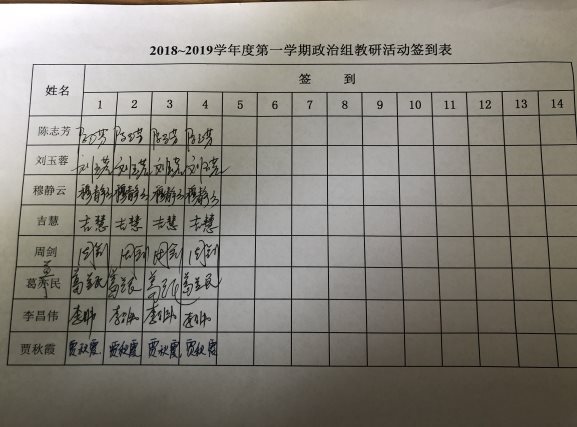 2018~2019学年度第一学期政治组教研活动签到表
姓名 签 到
1 2 3 4 5 6 7 8 9 10 11 12 13 14
陈志芳 陈志芳 陈志芳 陈志芳 陈志芳
刘玉蓉 刘玉蓉 刘玉蓉 刘玉蓉 刘玉蓉
穆静云 穆静云 穆静云 穆静云 穆静云
吉慧 吉慧 吉慧 吉慧 吉慧
周剑 周剑 周剑 周剑 周剑
葛亦民
李昌伟 李昌伟 李昌伟 李昌伟 李昌伟
贾秋霞 贾秋霞 贾秋霞 贾秋霞 贾秋霞